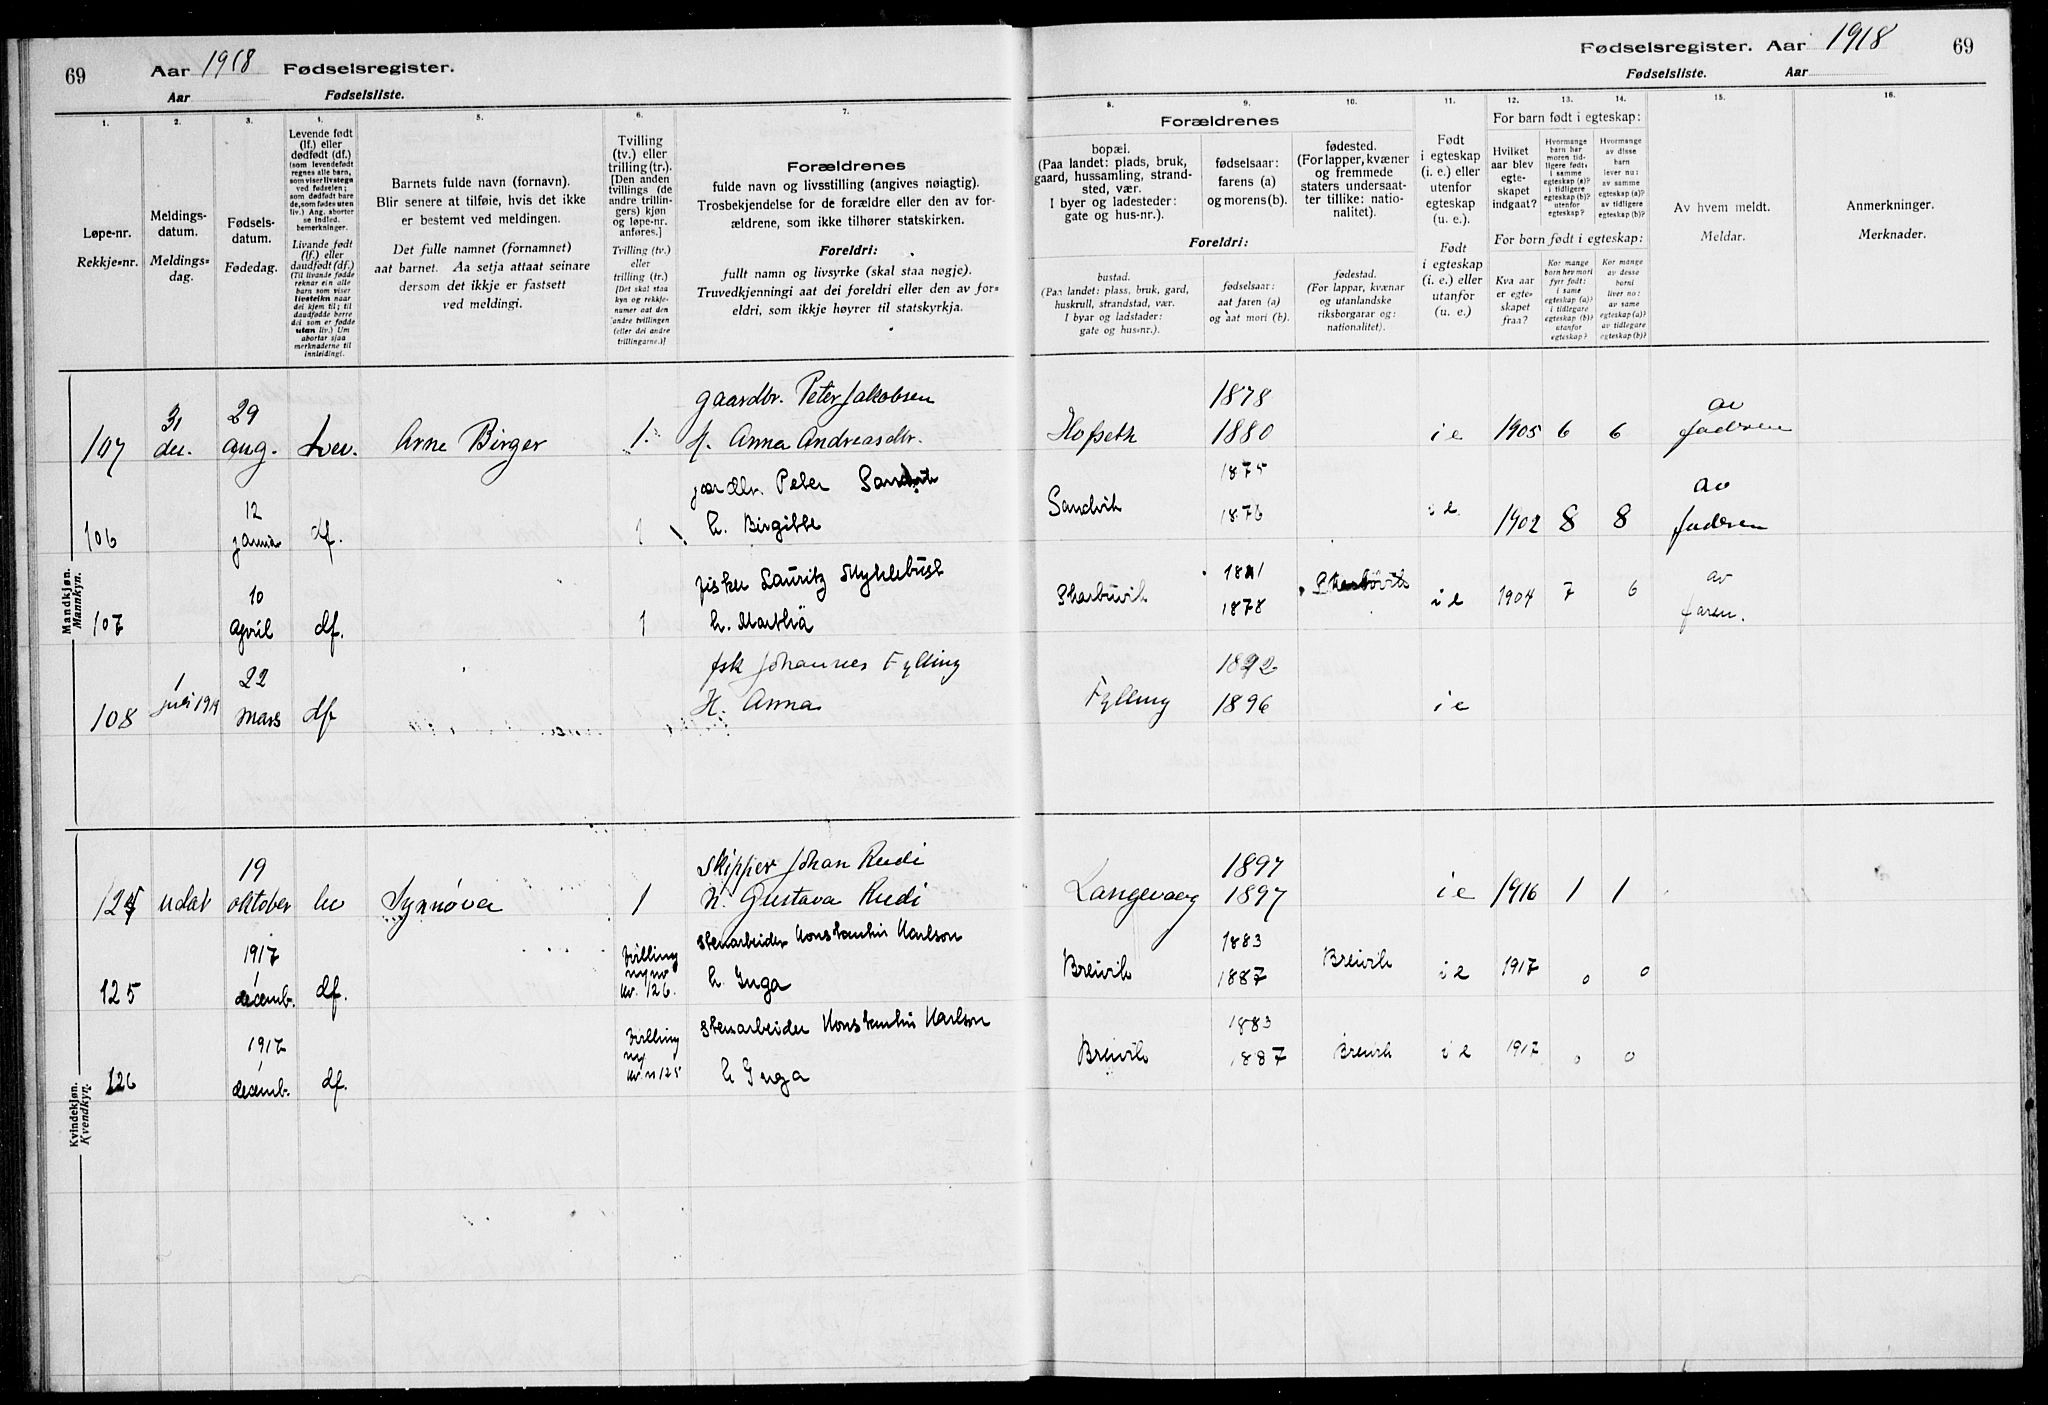 69 Aar 1918 Fødselsregister.
Aar Fødselsliste.
Fødselsregister. Aar 1918 69
Fødselsliste. Aar
1.
Løpe-nr.
Rekkje-nr.
2.
Meldings-
datum.
Meldings-
dag.
3.
Fødsels-
datum.
Fødedag.
4.
Levende født
(lf.) eller
dødfødt (df.)
(som levendefødt
regnes alle barn,
som viser livstegn
ved fødselen;
som dødfødt bare
de, som fødes uten
liv.) Ang. aborter
se indled.
bemerkninger.
Livande født
(lf.) eller
daudfødt (df.)
(Til livande fødde
reknar ein alle
barn som viser
livsteikn naar
dei kjem til; til
daudfødde berre
dei som er fødde
utan liv.) Um
abortar sjaa
merknaderne til
innleidingi.
5.
Barnets fulde navn (fornavn).
Blir senere at tilføie, hvis det ikke
er bestemt ved meldingen.
Det fulle namnet (fornamnet)
aat barnet. Aa setja attaat seinare
dersom det ikkje er fastsett
ved meldingi.
6.
Tvilling
(tv.) eller
trilling (tr.).
[Den anden
tvillings (de
andre trillin-
gers) kjøn
og løpe-nr.
anføres.]
Tvilling (tv.)
eller
trilling (tr.)
[Det skal staa
kyn og rekkje-
numer aat den
andre tvillingen
(eller dei andre
trillingarne.)]
7.
Forældrenes
fulde navn og livsstilling (angives nøiagtig).
Trosbekjendelse for de forældre eller den av for-
ældrene, som ikke tilhører statskirken.
Foreldri:
fullt namn og livsyrke (skal staa nøgje).
Truvedkjenningi aat dei foreldri eller den av for-
eldri, som ikkje høyrer til statskyrkja.
Forældrenes
8.
bopæl.
(Paa landet: plads, bruk,
gaard, hussamling, strand-
sted, vær.
I byer og ladesteder:
gate og hus-nr.).
9.
fødselsaar:
farens (a)
og morens (b).
10.
fødested.
(For lapper, kvæner
og fremmede
staters undersaat-
ter tillike: natio-
nalitet).
Foreldri:
bustad.
(Paa landet: plass, bruk, gard,
huskrull, strandstad, vær.
I byar og ladstader:
gate og hus-nr.).
fødselsaar:
aat faren (a)
og aat mori (b).
fødestad.
(For lappar, kvænar
og utanlandske
riksborgarar og:
nationalitet).
11.
Født
i egteskap
(i. e.) eller
utenfor
egteskap
(u. e.).
Født
i egteskap
(i. e.) eller
utanfor
(u. e.)
For barn født i egteskap:
12.
Hvilket
aar blev
egte-
skapet
indgaat?
13.
Hvormange
barn har
moren tid-
ligere født:
i samme
egteskap (a)?
i tidligere
egteskap (b)?
utenfor
egteskap?
14.
Hvormange
av disse
barn
lever nu:
av samme
egteskap (a)?
av tidligere
egteskap (b)?
For born født i egteskap:
Kva aar
er egte-
skapet
fraa?
Kor mange
born hev mori
fyrr født:
i same
egteskap (a)?
i tidlegare
egteskap (b)?
utanfor
egteskap?
Kor mange
av desse
borni
liver no:
av same
egteskap (a)?
av tidlegare
egteskap (b)?
15.
Av hvem meldt.
Meldar.
16.
Anmerkninger.
Merknader.
Mandkjøn.
Mannkyn.
107 31 des. 29 aug. Lev. Arne Birger 1. gaardbr. Peter Jakobsen
H. Anna Andreasdtr. Hofseth 1878 1880 i e 1905 6 6 av faderen
106 12 januar df. 1 gaardbr. Peter Sandvik
h. Birgitte Sandvik 1875 1876 i e 1902 8 8 av faderen
107 10 april df. 1 fisker Lauritz Myklebust
h. Marthe 1878 i e 1904 7 6 av faren.
108 1 juli 1919 22 mars df fsk Johannes Fylling
H. Anna Fylling 1892 1896 i e
Kvindekjøn.
Kvendkyn.
124 udat 19 oktober lev Synnøva 1 Skipper Johan Rudi
H. Gustava Rudi Langevaag 1897 1897 i e 1916 1 1
125 1917 decemb. df. Tvilling
kv. 126. Stenarbeider Konstantin Karlson
h. Inga Breivik 1883 1887 Breivik i e 1917 0 0
126 1917 decemb. df. Tvilling
kv. n 125 Stenarbeider Konstantin Karlson
h Inga Breivik 1883 1887 Breivik i e 1917 0 0